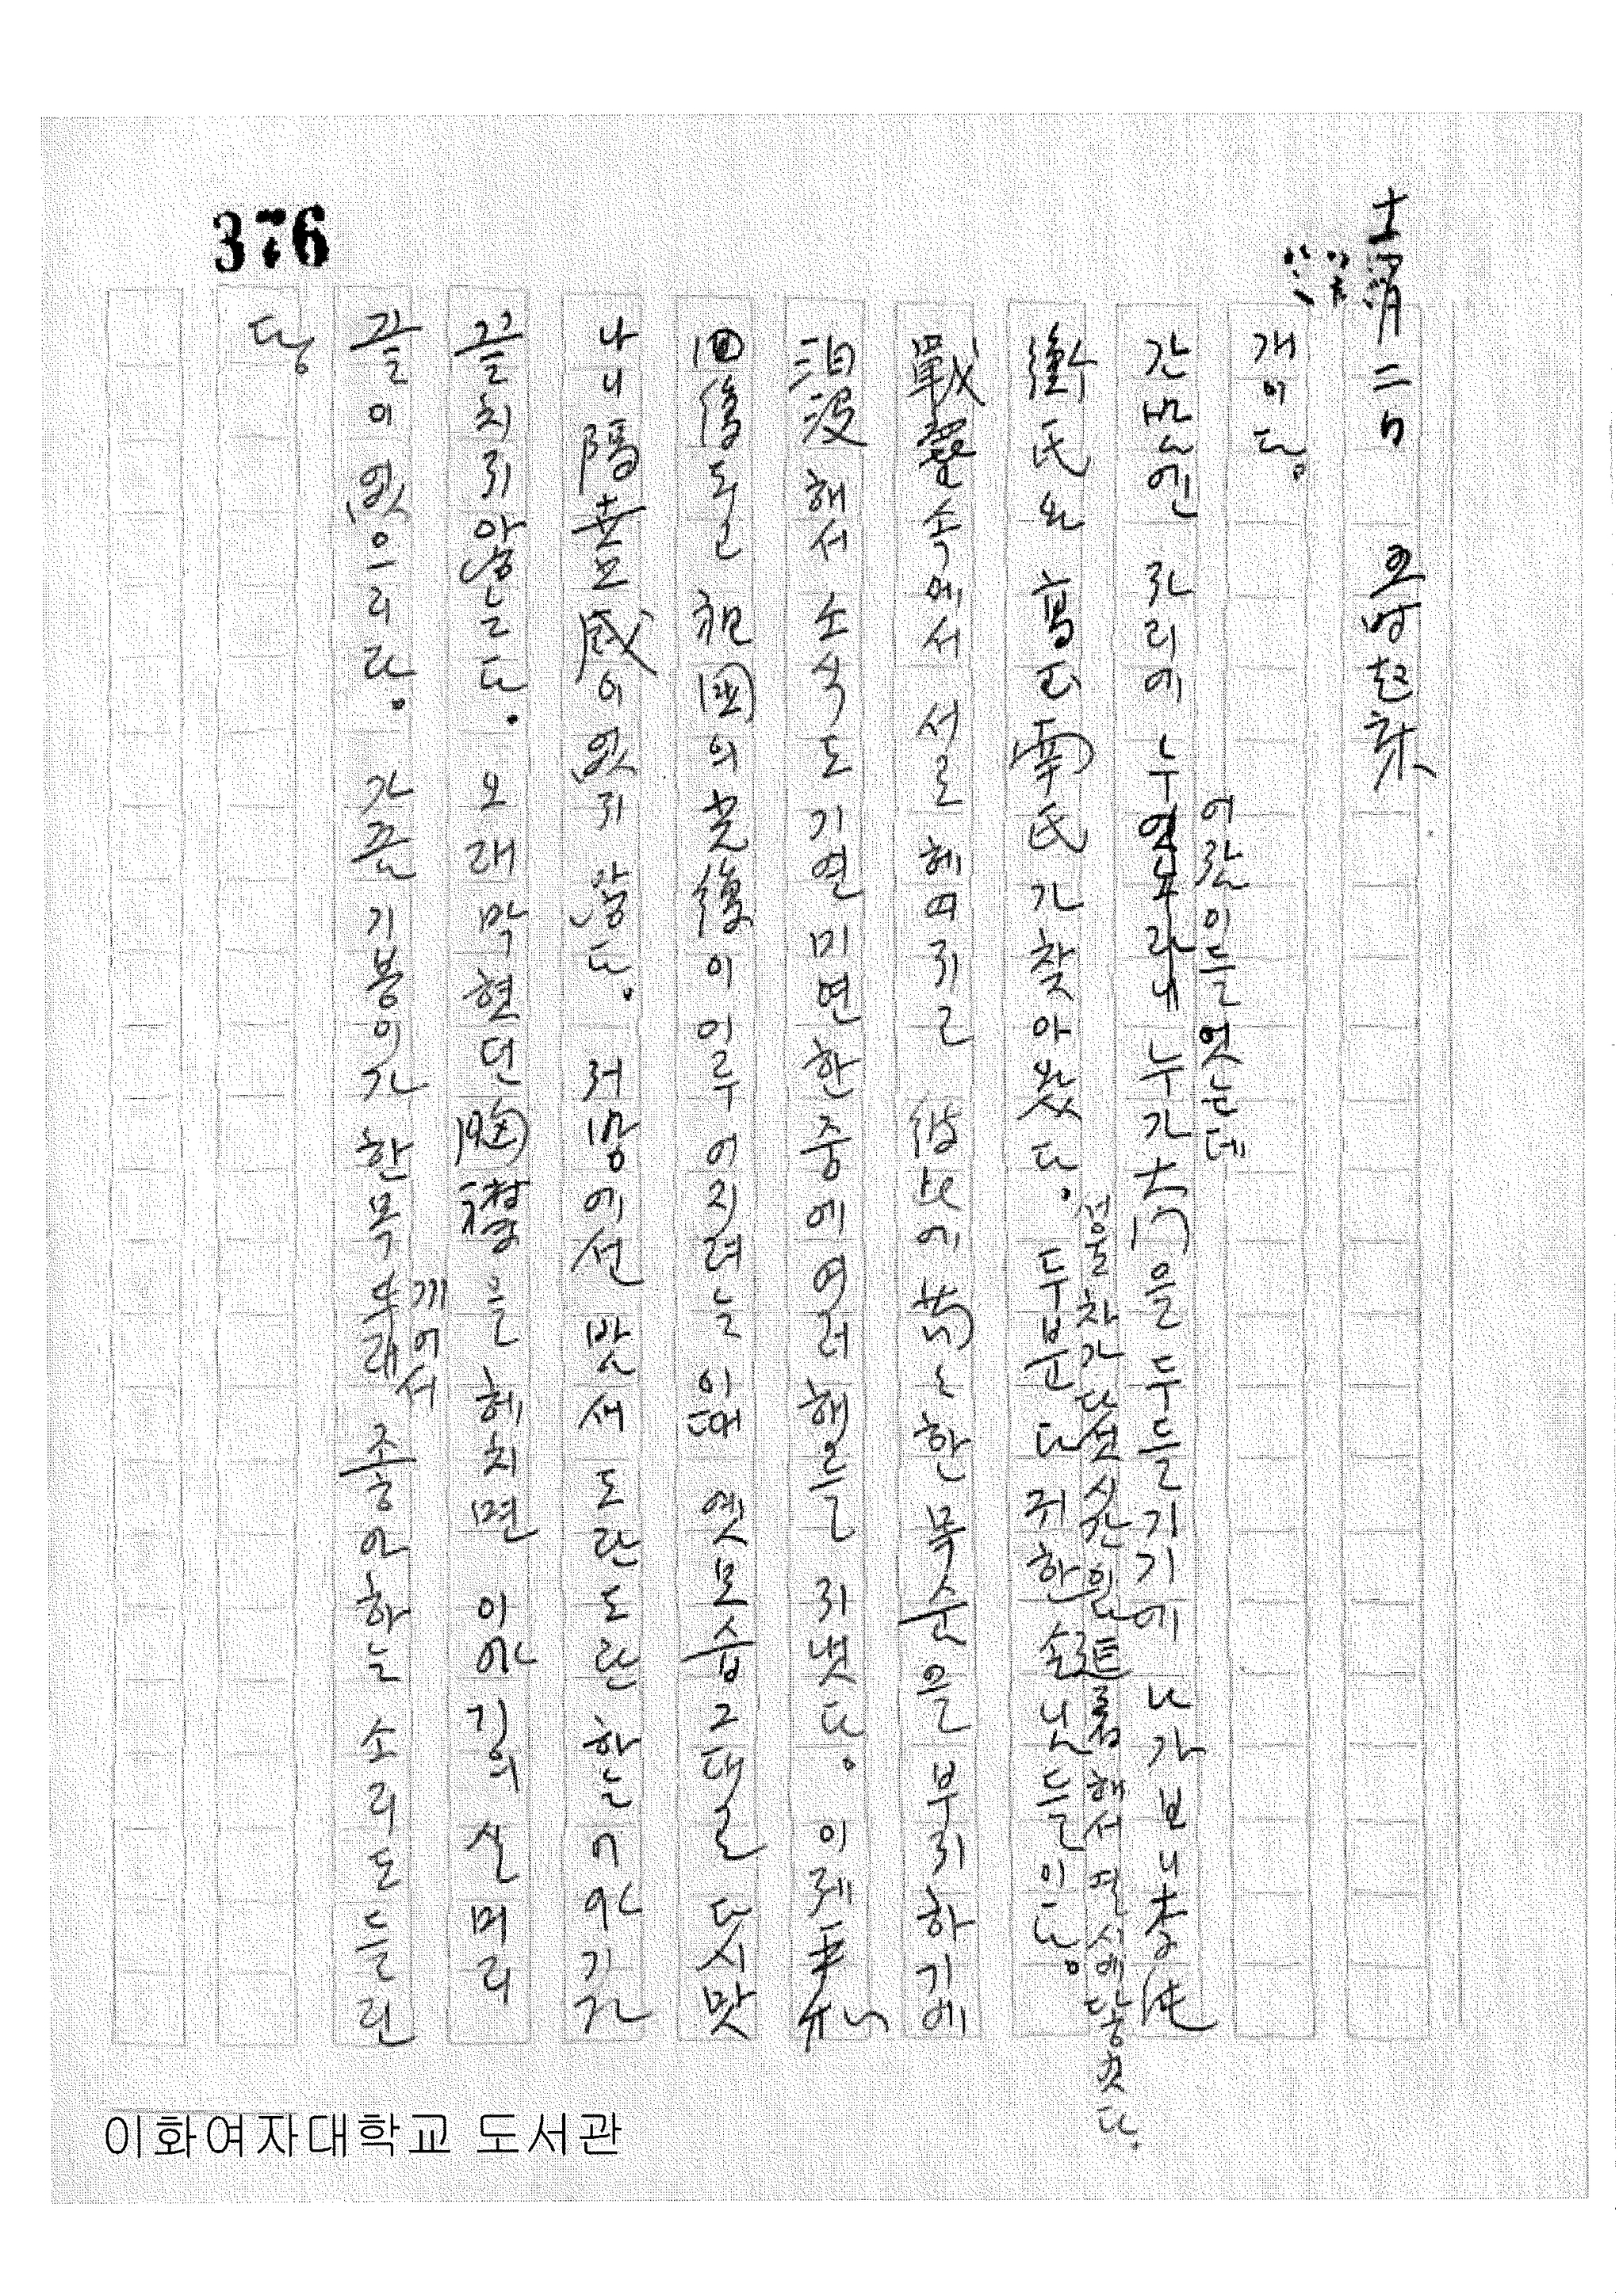 376
十二月 二日 五時起床
개이다.
간밤엔 자리에 누엇노라니 누가 大門을 두들기기에 나가보니 李德
어람이들엇는데
衡氏와 高志南氏가 찾아왔다. 두분 다 귀한 손님들이다.
서울차가 다섯시간을 連着해서 열시에 닿았다.
戰塵속에서 서로 헤여지고 彼此에 苟苟한 목숨을 부지하기에
汨沒해서 소식도 기연미연한중에 여러해를 지냇다. 이제 平和
回復도고 祖國의 光復이 이루어지려는 이때 옛모습 그대로 다시맛
나니 隔世感이 없지 않다. 저맘에선 밧새 도란도란 하는 이야기가
끝치지 않는다. 오래 막혔던 胸襟을 헤치면 이야길의 실머리
끝이 없으리라. 가끔 기봉이가 한목 뚜래 좋아하는 소리도 들린
끼어서
다.
이화여자대학교 도서관